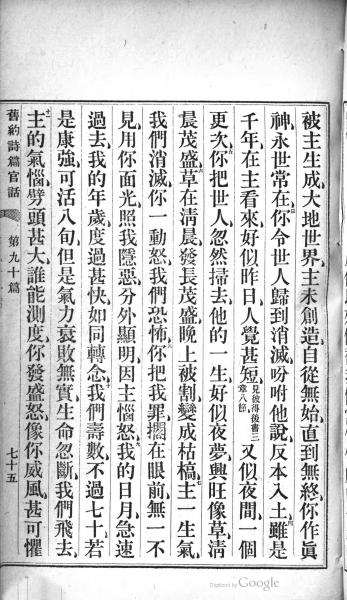 被主生成、大地世界、主未創造、自從無始、直到無終、你作眞
神、永世常在、你令世人歸到消滅、吩咐他說、反本入土、雖是
千年、在主看來、好似昨日、人覺甚短、見彼得後書三章八節又似夜間一個
更次、你把世人忽然掃去、他的一生、好似夜夢、興旺像草、清
晨茂盛、草在清晨、發長茂盛、晚上被割、變成枯槁、主一生氣、
我們消滅、你一動怒、我們恐怖、你把我罪、擱在眼前、無一不
見、用你面光、照我隱惡、分外顯明、因主惱怒、我的日月、急速
過去、我的年歲、度過甚快、如同轉念、我們壽數、不過七十、若
是康強、可活八旬、但是氣力衰敗無實、生命忽斷、我們飛去、
主的氣惱、劈頭甚大、誰能測度、你發盛怒、像你威風、甚可懼
舊約詩篇官話 第九十篇 七十五
Digitized by Google